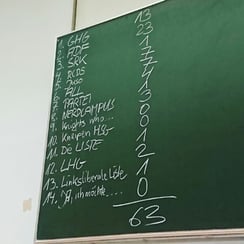 1. GHG 13
2. FDF 23
3. SRK 1
4. RCDS 7
5. Juso 7
6. ALL 4
7. PARTEI 1
8. NERDCAMPUS 3
9. Knights who... 0
10. Kneipen HSG 0
11. Die LISTE 1
12. LHG 2
13. Linksliberale Liste 1
14. Ja, ich möchte.... 0
63